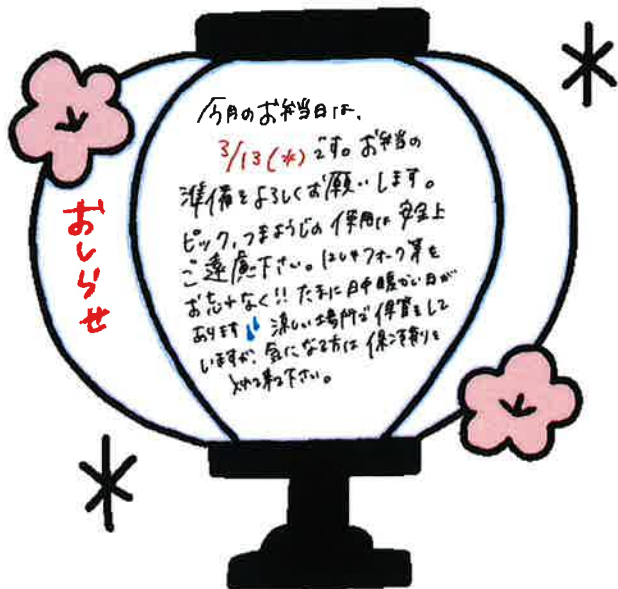 おしらせ
今月のお弁当日は、
3/13(水)です。お弁当の
準備をよろしくお願いします。
ピック、つまようじの使用は安全上
ご遠慮下さい。はしやフォーク等を
お忘れなく!! たまに日中暖かい日が
あります 涼しい場所で保管をして
いますが、気になる方は保冷剤を
入れて来て下さい。